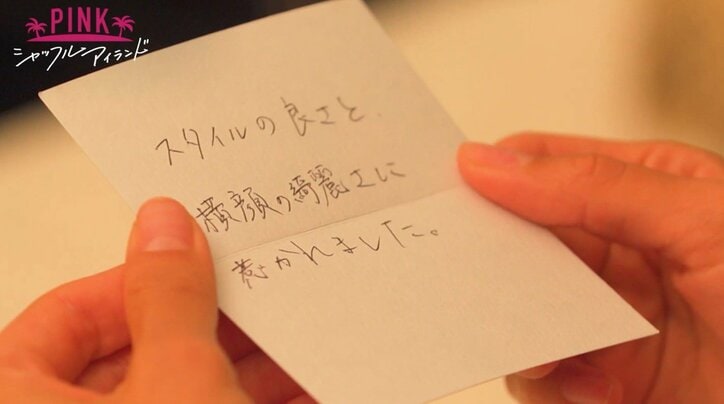 PINK
シャッフルアイランド
スタイルの良さと、
横顔の綺麗さに
惹かれました。